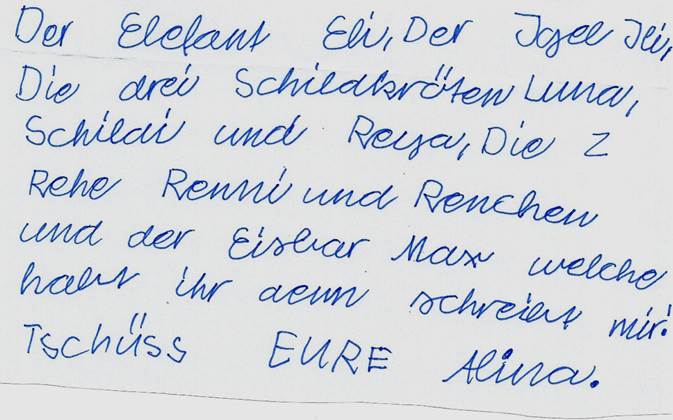 Der Elefant Eli, Der Igel Ili,
Die drei Schildkröten Luna,
Schildi und Reya, Die 2
Rehe Renni und Renchen
und der Eisbar Max welche
habt ihr denn schreibt mir.
Tschüss EURE Alina.